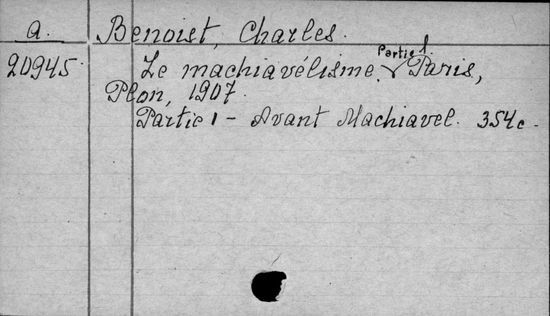 a. Benoist, Charles.
20945. Le machiavélisme. Partie 1. Paris,
Plon, 1907.
Partie 1 - Avant Machiavel. 354c.